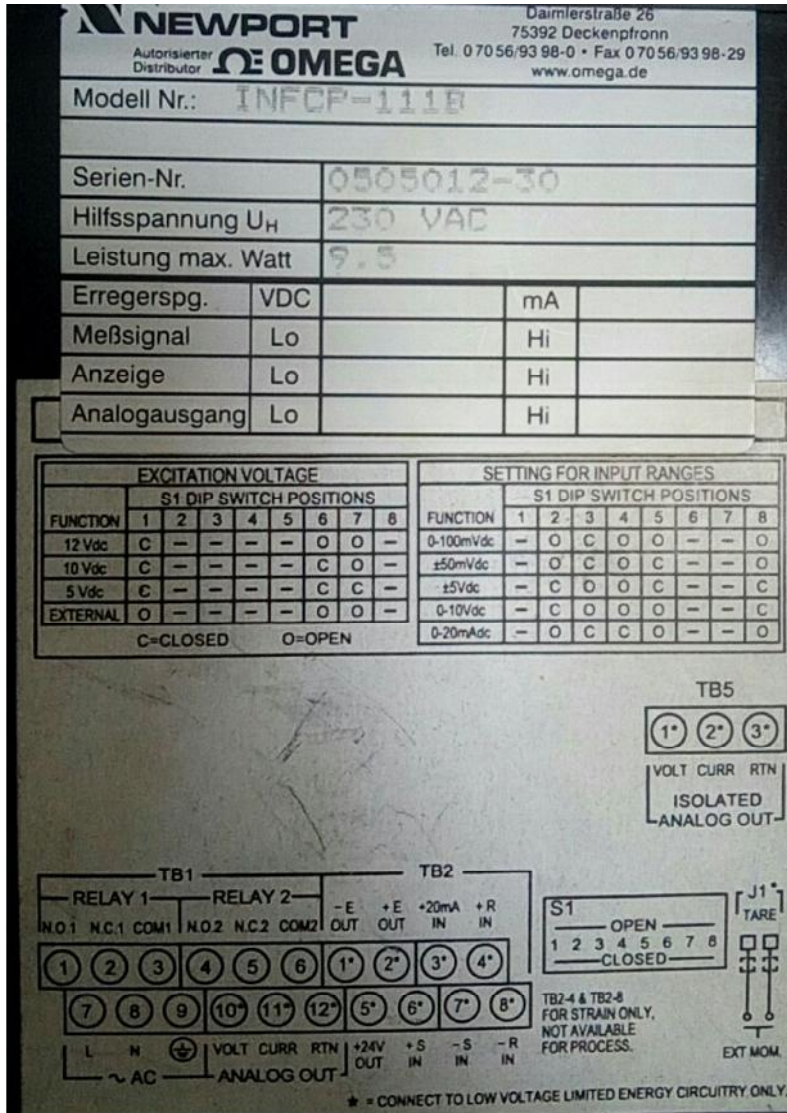 NEWPORT
Autorisierter
Distributor ΩE OMEGA
Daimlerstraße 26
75392 Deckenpfronn
Tel. 0 70 56/93 98-0 • Fax 0 70 56/93 98-29
www.omega.de
Modell Nr.: INFCP-111B
Serien-Nr. 0505012-30
Hilfsspannung UH 230 VAC
Leistung max. Watt 9.5
Erregerspg. VDC mA
Meßsignal Lo Hi
Anzeige Lo Hi
Analogausgang Lo Hi
EXCITATION VOLTAGE
S1 DIP SWITCH POSITIONS
FUNCTION 1 2 3 4 5 6 7 8
12 Vdc C – – – – O O –
10 Vdc C – – – – C O –
5 Vdc C – – – – C C –
EXTERNAL O – – – – O O –
C=CLOSED O=OPEN
SETTING FOR INPUT RANGES
S1 DIP SWITCH POSITIONS
FUNCTION 1 2 3 4 5 6 7 8
0-100mVdc – O C O O – – O
±50mVdc – O C O C – – O
±5Vdc – C O O C – – C
0-10Vdc – C O O O – – C
0-20mAdc – O C C O – – O
TB5
1* 2* 3*
VOLT CURR RTN
ISOLATED
ANALOG OUT
TB1 TB2
RELAY 1 RELAY 2
N.O.1 N.C.1 COM1 N.O.2 N.C.2 COM2
– E OUT + E OUT +20mA IN + R IN
1 2 3 4 5 6 1* 2* 3* 4*
7 8 9 10* 11* 12* 5* 6* 7* 8*
L N VOLT CURR RTN
+24V OUT + S IN – S IN – R IN
~ AC ANALOG OUT
S1
OPEN
1 2 3 4 5 6 7 8
CLOSED
TB2-4 & TB2-8
FOR STRAIN ONLY,
NOT AVAILABLE
FOR PROCESS.
J1*
TARE
EXT MOM.
★ = CONNECT TO LOW VOLTAGE LIMITED ENERGY CIRCUITRY ONLY.